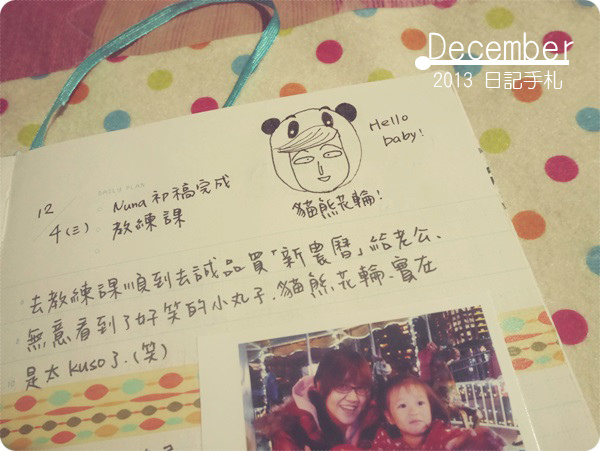 December
2013 日記手札
Hello
baby!
貓熊花輪!
DAILY PLAN
12
4(三)
Nuna 初稿完成
教練課
去教練課順到去誠品買「新農曆」給老公、
無意看到了好笑的小丸子.貓熊花輪.實在
是太kuso了.(笑)